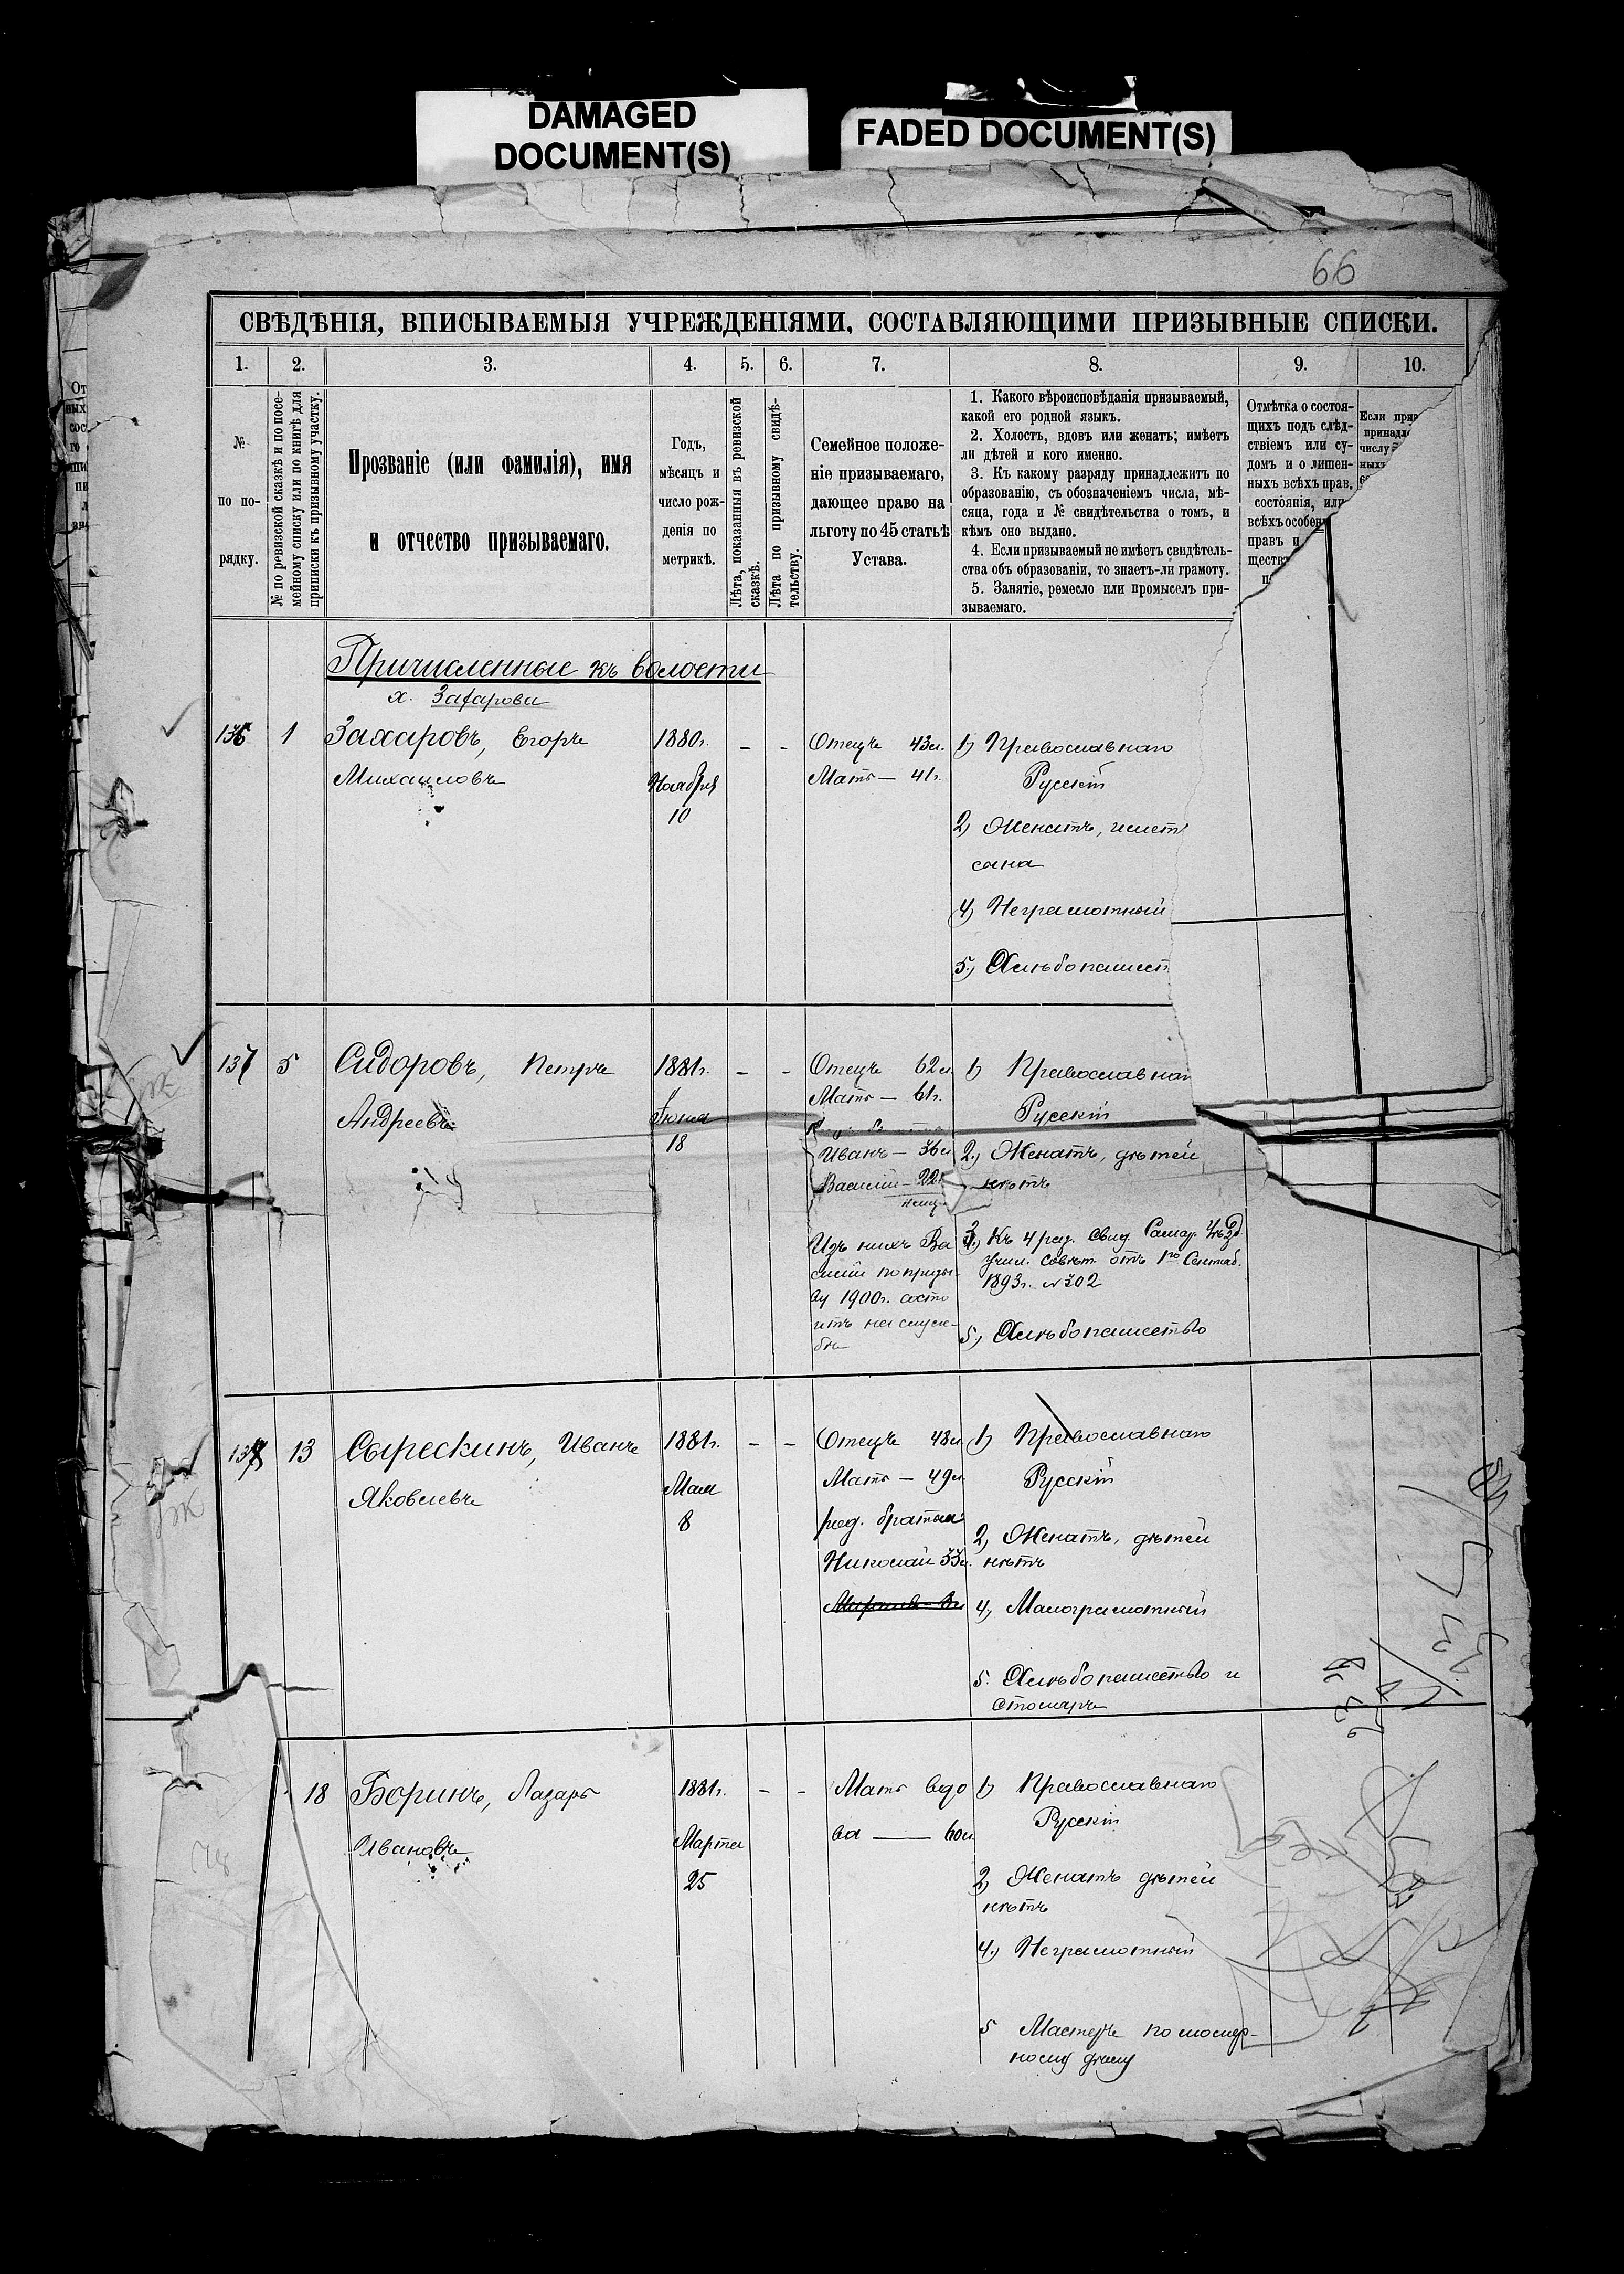 DAMAGED
DOCUMENT(S)
FADED DOCUMENT(S)
66
СВѢДѢНІЯ, ВПИСЫВАЕМЫЯ УЧРЕЖДЕНІЯМИ, СОСТАВЛЯЮЩИМИ ПРИЗЫВНЫЕ СПИСКИ.
1. 2. 3. 4. 5. 6. 7. 8. 9. 10.
№
по по-
рядку.
№ по ревизской сказкѣ и по посе-
мейному списку или по книгѣ для
приписки къ призывному участку.
Прозваніе (или фамилія), имя
и отчество призываемаго.
Годъ,
мѣсяцъ и
число рож-
денія по
метрикѣ.
Лѣта, показанныя въ ревизской
сказкѣ.
Лѣта по призывному свидѣ-
тельству.
Семейное положе-
ніе призываемаго,
дающее право на
льготу по 45 статьѣ
Устава.
1. Какого вѣроисповѣданія призываемый,
какой его родной языкъ.
2. Холостъ, вдовъ или женатъ; имѣетъ
ли дѣтей и кого именно.
3. Къ какому разряду принадлежитъ по
образованію, съ обозначеніемъ числа, мѣ-
сяца, года и № свидѣтельства о томъ, и
кѣмъ оно выдано.
4. Если призываемый не имѣетъ свидѣтель-
ства объ образованіи, то знаетъ-ли грамоту.
5. Занятіе, ремесло или промыселъ при-
зываемаго.
Отмѣтка о состоя-
щихъ подъ слѣд-
ствіемъ или су-
домъ и о лишен-
ныхъ всѣхъ прав.
состоянія, или
всѣхъ особен
правъ и
Если
числу
ныхъ
Причисленные къ волости
х. Захарова
136 1 Захаровъ, Егоръ
Михаиловъ
1880г.
Ноября
10
- -
Отецъ 43л.
Мать — 41г.
1) Православнаго
Русскій
2) Женатъ, имѣетъ
сына
4) Неграмотный
5.) Хлѣбопашест
137 5 Сидоровъ, Петръ
Андреевъ
1881г.
Іюня
18
- -
Отецъ 62л.
Мать — 61г.
Иванъ — 36л
Василій — 22г
Изъ нихъ Ва
силій по призы-
ву 1900г. состо
итъ на служ-
бѣ
1) Православнаго
Русскій
2.) Женатъ, дѣтей
нѣтъ
3.) Къ 4 раз. Свид. Самар. Уѣзд.
Учил. Совѣт. отъ 1го Сентяб.
1893г. № 302
5.) Хлѣбопашество
138 13 Сырескинъ, Иванъ
Яковлевъ
1881г.
Мая
8
- -
Отецъ 48л
Мать — 49л
род. братья
Николай 33л.
1) Православнаго
Русскій
2) Женатъ, дѣтей
нѣтъ
4) Малограмотный
5. Хлѣбопашество и
Столяръ
18 Боринъ, Лазарь
Ивановъ
1881г.
Марта
25
- -
Мать вдо
ва — 60л
1) Православнаго
Русскій
2) Женатъ дѣтей
нѣтъ
4.) Неграмотный
5 Мастеръ по маляр-
ному дѣлу